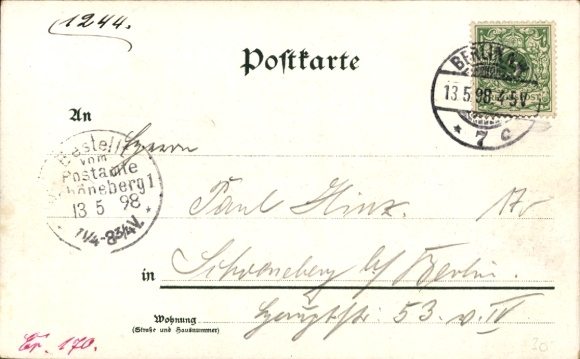 1244.
Postkarte
BERLIN
13 5. 98. 4-5V.
* 7 c
An
Herrn
Bestellt
vom
Postamte
Schöneberg 1
13 5 98
7¼-8¾V.
Paul Hinz.
in
Schöneberg b/ Berlin.
Wohnung
(Straße und Hausnummer)
Hauptstr. 53. v. IV
Gr. 170.